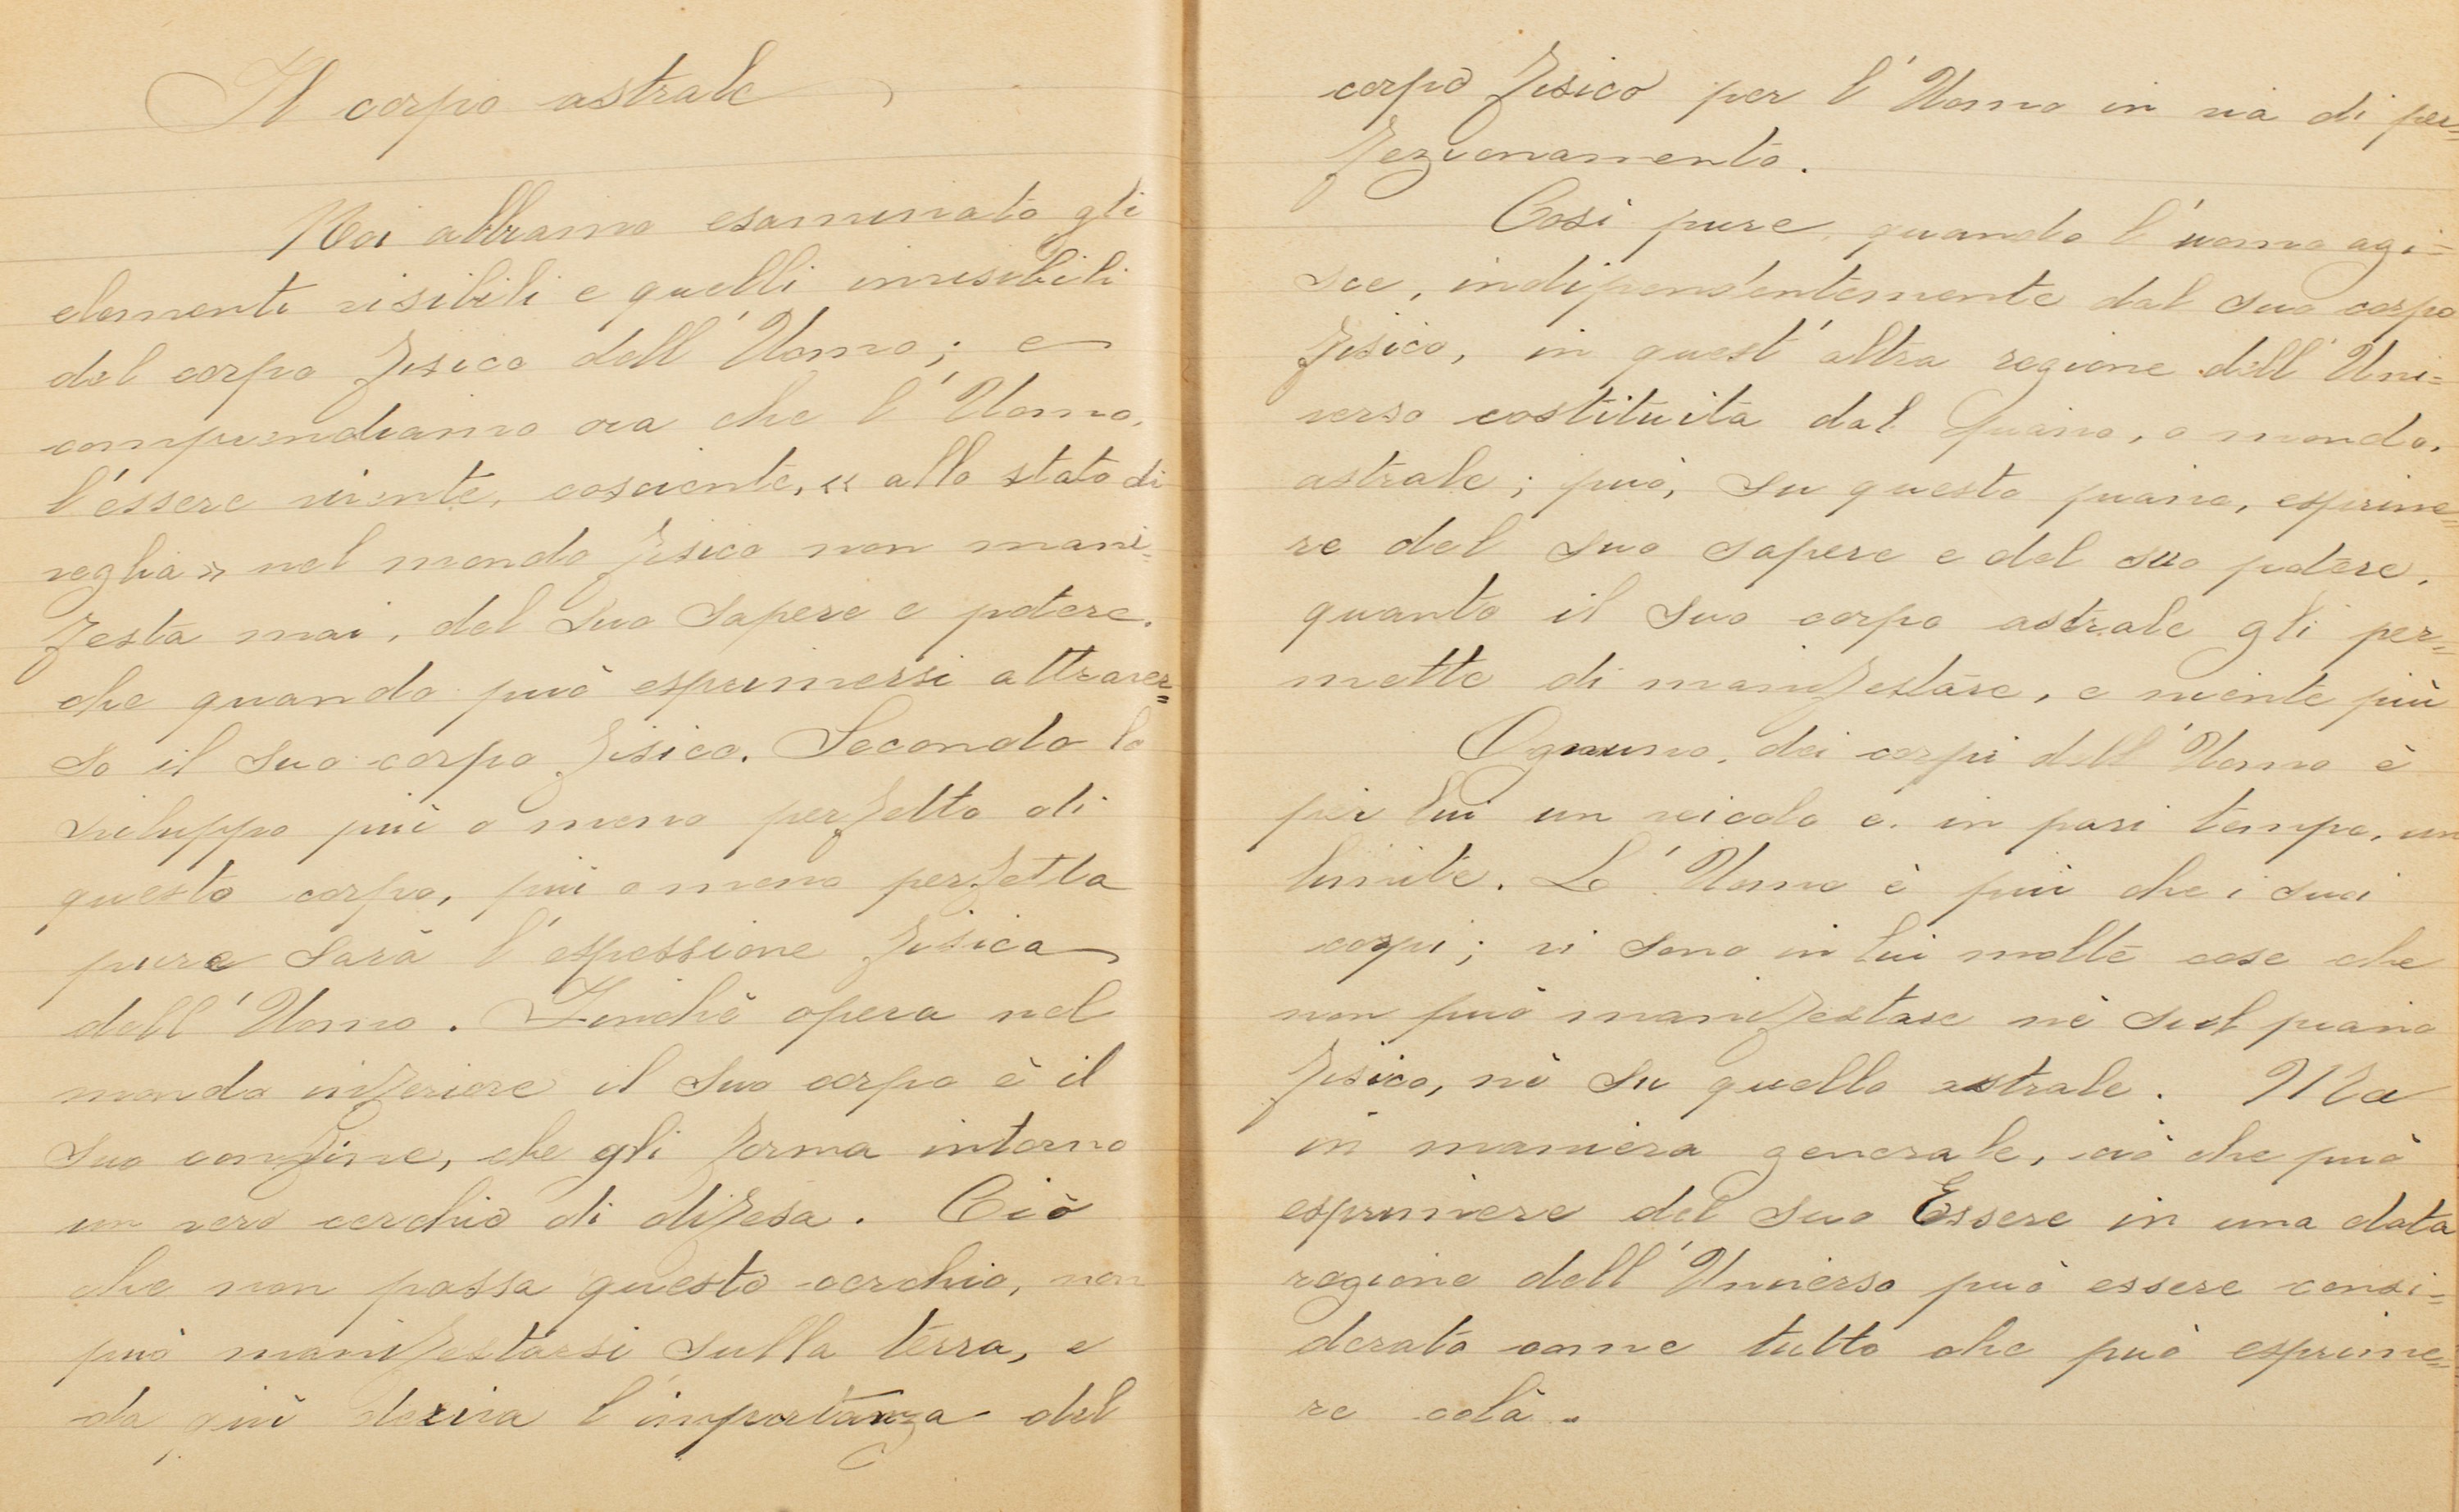 Il corpo astrale
Noi abbiamo esaminato gli
elementi visibili e quelli invisibili
del corpo fisico dell'Uomo; e
comprendiamo ora che l'Uomo,
l'essere vivente, cosciente, « allo stato di
veglia » nel mondo fisico non mani=
festa mai, del suo sapere e potere,
che quando può esprimersi attraver=
so il suo corpo fisico. Secondo lo
sviluppo più o meno perfetto di
questo corpo, più o meno perfetta
pure sarà l'espessione fisica
dell'Uomo. Finchè opera nel
mondo inferiore il suo corpo è il
suo confine, che gli forma intorno
un vero cerchio di difesa. Ciò
che non passa questo cerchio, non
può manifestarsi sulla terra, e
da qui deriva l'importanza del
corpo fisico per l'Uomo in via di per=
fezionamento.
Così pure, quando l'uomo agi=
sce, indipendentemente dal suo corpo
fisico, in quest'altra regione dell'Uni=
verso costituita dal piano, o mondo,
astrale; può, su questo piano, esprime=
re del suo sapere e del suo potere,
quanto il suo corpo astrale gli per=
mette di manifestare, e niente più
Ognuno, dei corpi dell'Uomo è
per lui un veicolo e, in pari tempo, un
limite. Lo'Uomo è più che i suoi
corpi; vi sono in lui molte cose che
non può manifestare nè sul piano
fisico, nè su quello astrale. Ma
in maniera generale, ciò che può
esprimere del suo Essere in una data
regione dell'Universo può essere consi=
derato come tutto che può esprime=
re colà.